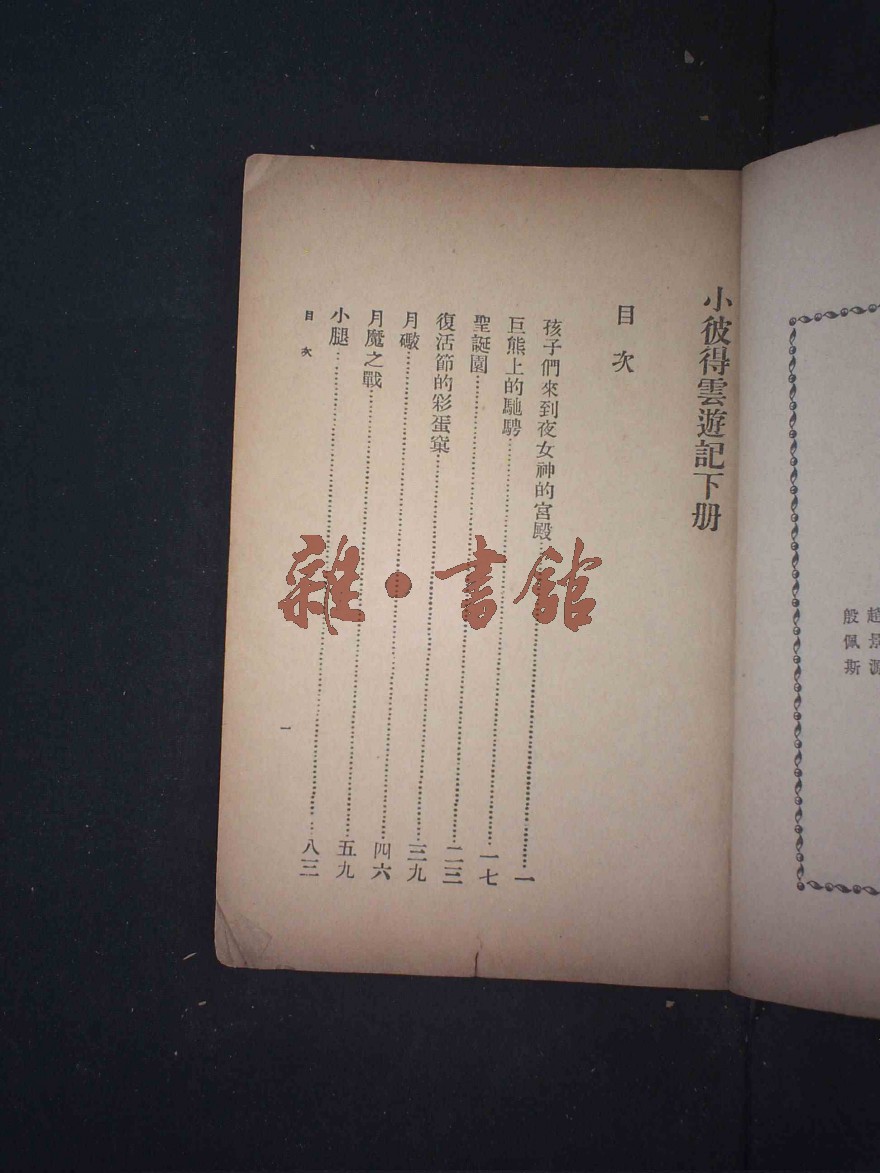 小彼得雲遊記下册
目次
孩子們來到夜女神的宮殿……一
巨熊上的馳騁……一七
聖誕園……二三
復活節的彩蛋窠……三九
月礮……四六
月魔之戰……五九
小腿……八三
目次
一
趙景源
殷佩斯
雜·書館